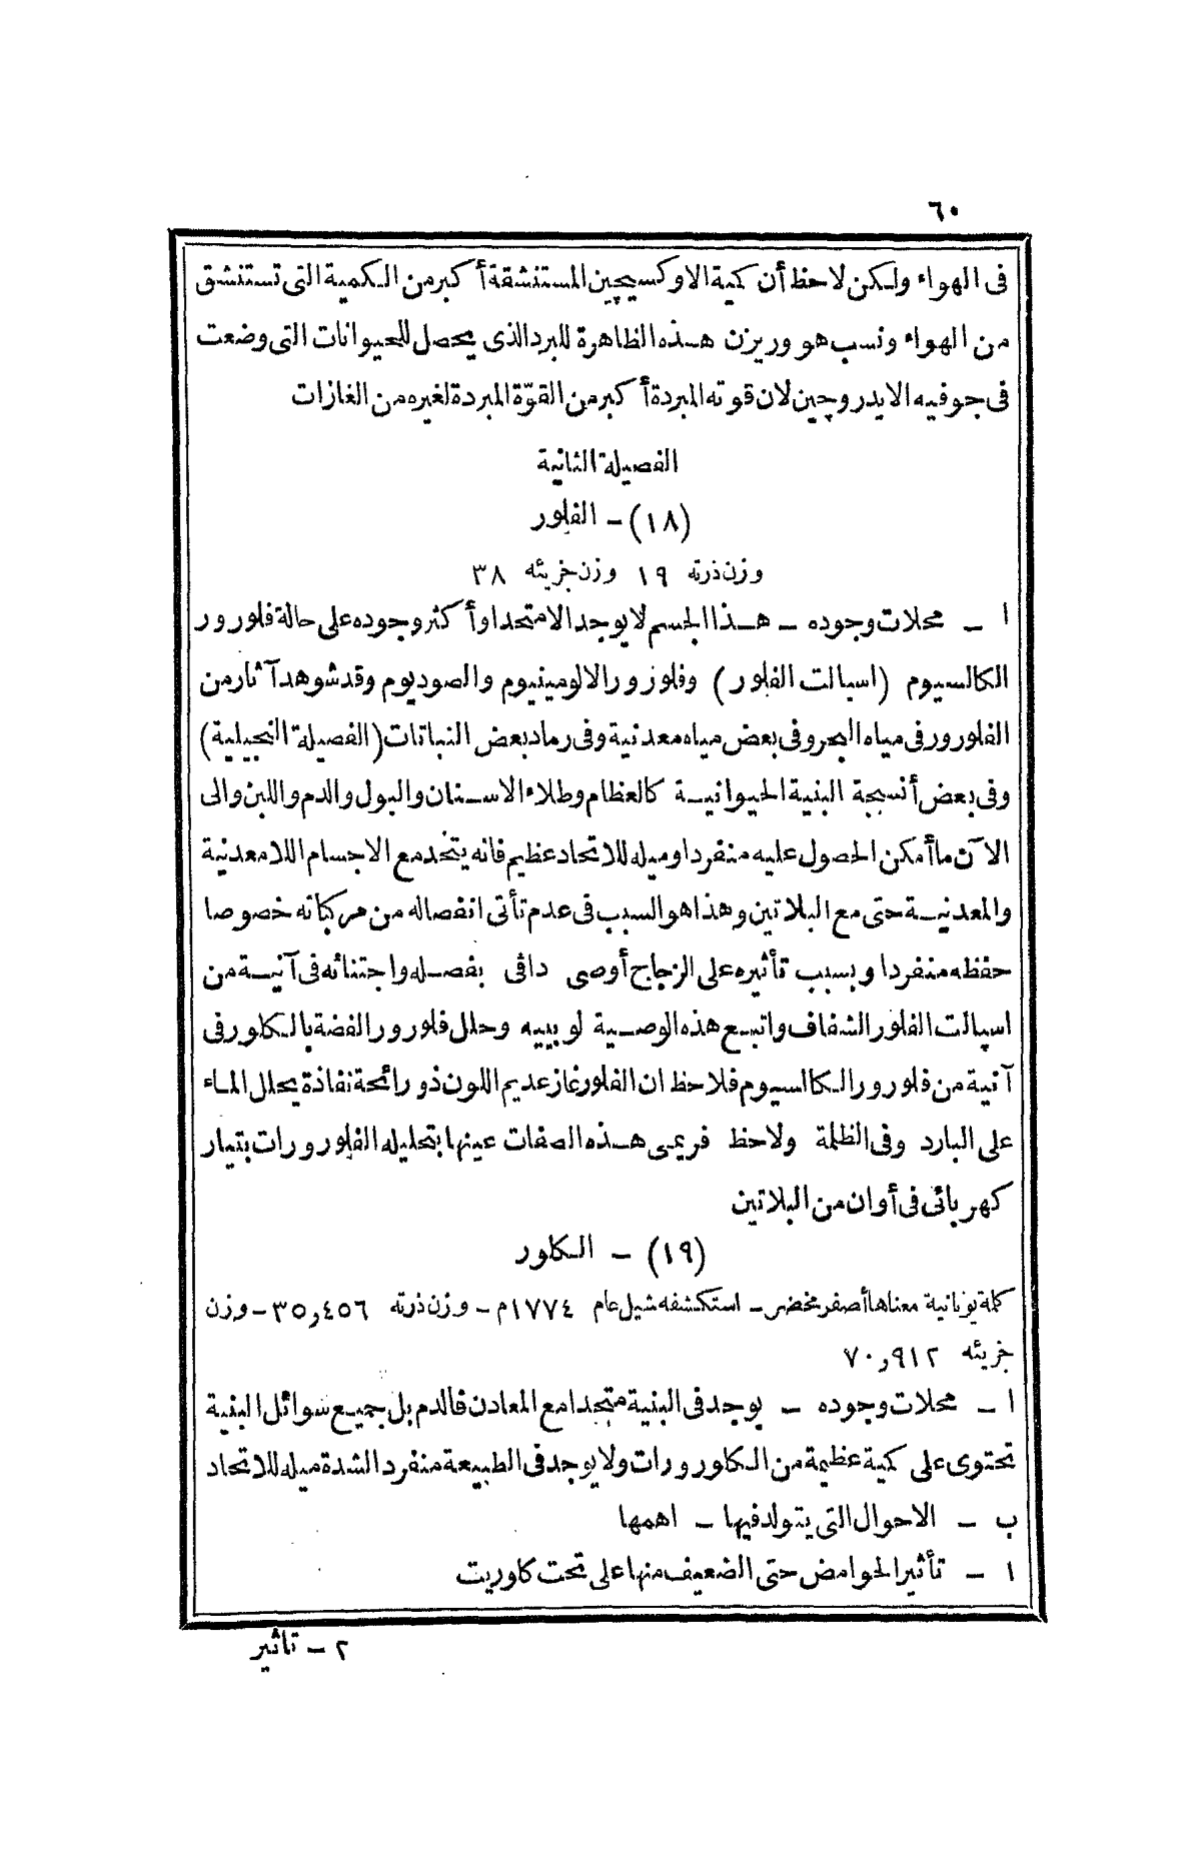 ٦٠
فى الهواء ولكن لاحظ أن كمية الاوكسيچين المستنشقة أكبر من الكمية التى تستنشق
من الهواء ونسب هو وريزن هذه الظاهرة للبرد الذى يحصل للحيوانات التى وضعت
فى جو فيه الايدروچين لان قوته المبردة أكبر من القوّة المبردة لغيره من الغازات
الفصيلة الثانية
(١٨) - الفلور
وزن ذرته ١٩ وزن جزيئه ٣٨
ا - محلات وجوده - هذا الجسم لا يوجد الا متحدا وأكثر وجوده على حالة فلورور
الكالسيوم (اسپالت الفلور) وفلورور الالومينيوم والصوديوم وقد شوهد آثار من
الفلورور فى مياه البحر وفى بعض مياه معدنية وفى رماد بعض النباتات (الفصيلة النجيلية)
وفى بعض أنسجة البنية الحيوانية كالعظام وطلاء الاسنان والبول والدم واللبن والى
الآن ما أمكن الحصول عليه منفردا وميله للاتحاد عظيم فانه يتحد مع الاجسام اللامعدنية
والمعدنية حتى مع البلاتين وهذا هو السبب فى عدم تأتى انفصاله من مركباته خصوصا
حفظه منفردا وبسبب تأثيره على الزجاج أوصى دافى بفصله واجتنائه فى آنية من
اسپالت الفلور الشفاف واتبع هذه الوصية لوييه وحلل فلورور الفضة بالكلور فى
آنية من فلورور الكالسيوم فلاحظ ان الفلور غاز عديم اللون ذو رائحة نفاذة يحلل الماء
على البارد وفى الظلمة ولاحظ فريمى هذه الصفات عينها بتحليله الفلورورات بتيار
كهربائى فى أوان من البلاتين
(١٩) - الكلور
كلمة يونانية معناها أصفر مخضر - استكشفه شيل عام ١٧٧٤م - وزن ذرته ٣٥٫٤٥٦ - وزن
جزيئه ٧٠٫٩١٢
ا - محلات وجوده - يوجد فى البنية متحدا مع المعادن فالدم بل جميع سوائل البنية
تحتوى على كمية عظيمة من الكلورورات ولا يوجد فى الطبيعة منفردا لشدة ميله للاتحاد
ب - الاحوال التى يتولد فيها - اهمها
١ - تأثير الحوامض حتى الضعيف منها على تحت كلوريت
٢ - تاثير